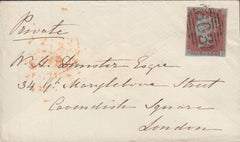 Private
W. G. Dunster Esqre
34 Gt Marylebone Street
Cavendish Square
London